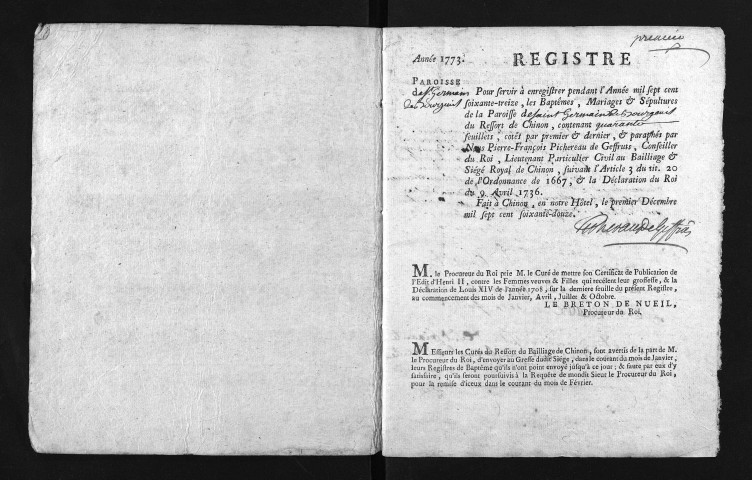 premier
Année 1773.
REGISTRE
PAROISSE
de St. Germain
de Bourgueil
Pour servir à enregistrer pendant l'Année mil sept cent
soixante-treize, les Baptêmes, Mariages & Sépultures
de la Paroisse de Saint Germain de Bourgueil
du Ressort de Chinon, contenant quarante
feuillets, cotés par premier & dernier, & paraphés par
Nous Pierre-François Pichereau de Geffruts, Conseiller
du Roi, Lieutenant Particulier Civil au Bailliage &
Siége Royal de Chinon, suivant l'Article 3 du tit. 20
de l'Ordonnance de 1667, & la Déclaration du Roi
du 9 Avril 1736.
Fait à Chinon, en notre Hôtel, le premier Décembre
mil sept cent soixante-douze.
M. le Procureur du Roi prie M. le Curé de mettre son Certificat de Publication de
l'Edit d'Henri II, contre les Femmes veuves & Filles qui recélent leur grossesse, & la
Déclaration de Louis XIV de l'année 1708, sur la derniere feuille du présent Registre,
au commencement des mois de Janvier, Avril, Juillet & Octobre.
LE BRETON DE NUEIL,
Procureur du Roi.
MEssieurs les Curés du Ressort du Bailliage de Chinon, sont avertis de la part de M.
le Procureur du Roi, d'envoyer au Greffe dudit Siége, dans le courant du mois de Janvier,
leurs Registres de Baptême qu'ils n'ont point envoyé jusqu'à ce jour; & faute par eux d'y
satisfaire, qu'ils seront poursuivis à la Requête de mondit Sieur le Procureur du Roi,
pour la remise d'iceux dans le courant du mois de Février.